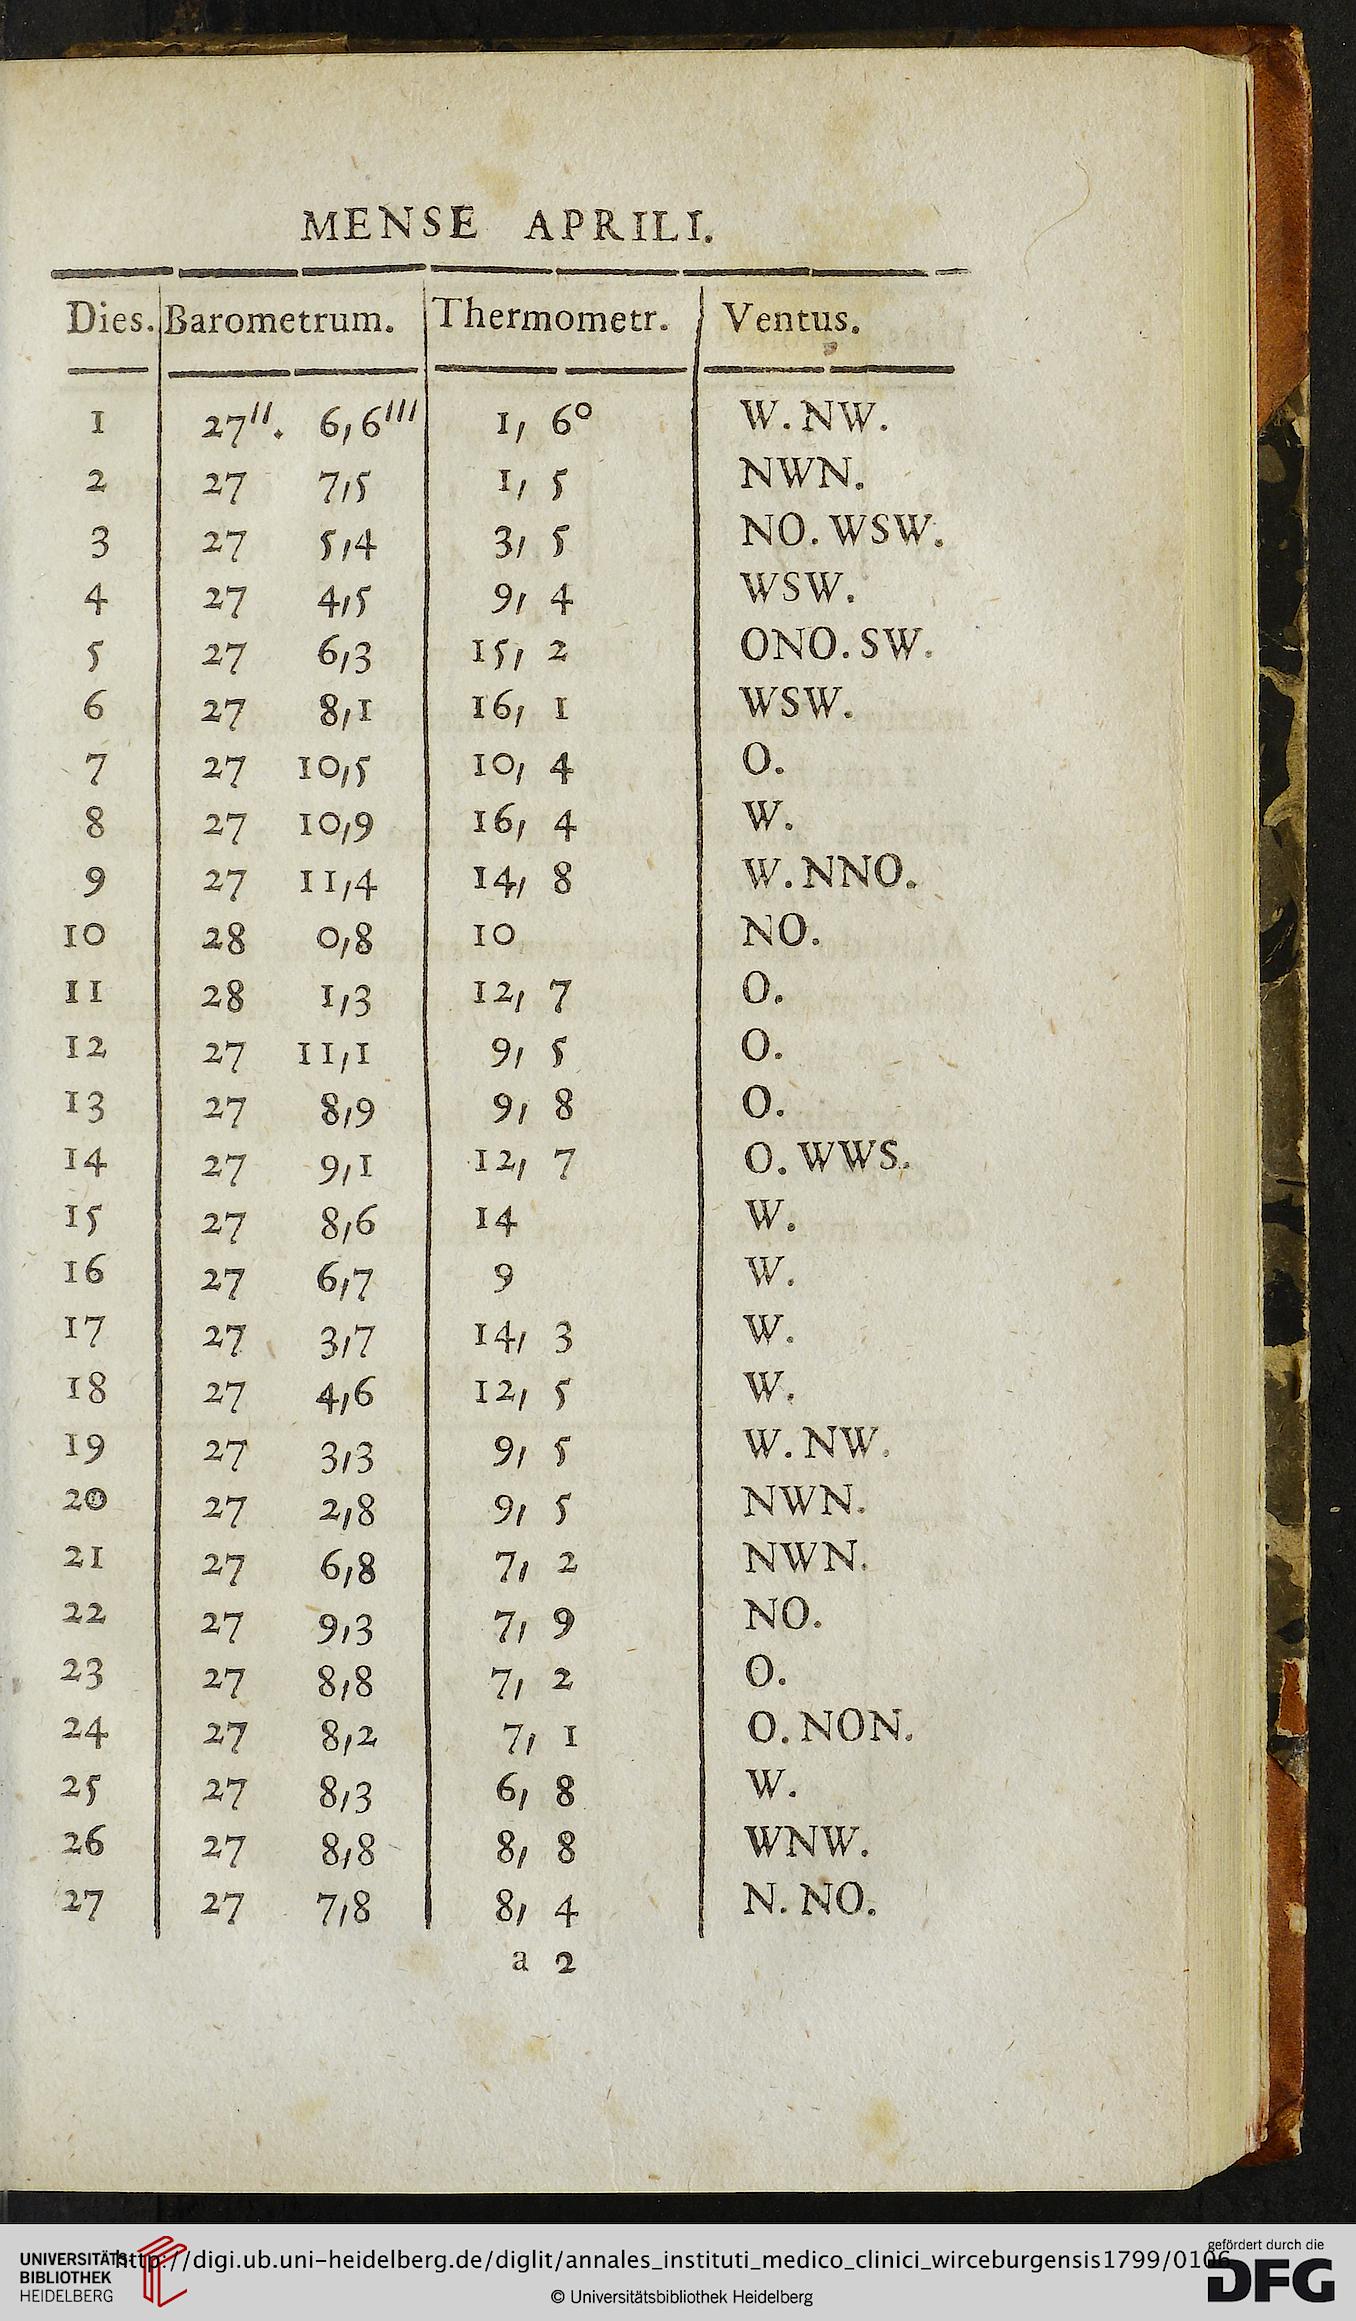 MENSE APRILI.
Dies. Barometrum. Thermometr. Ventus.
1 27". 6,6"' 1, 6° W. NW.
2 27 7,5 1, 5 NWN.
3 27 5,4 3, 5 NO. WSW.
4 27 4,5 9, 4 WSW.
5 27 6,3 15, 2 ONO. SW.
6 27 8,1 16, 1 WSW.
7 27 10,5 10, 4 O.
8 27 10,9 16, 4 W.
9 27 11,4 14, 8 W. NNO.
10 28 0,8 10 NO.
11 28 1,3 12, 7 O.
12 27 11,1 9, 5 O.
13 27 8,9 9, 8 O.
14 27 9,1 12, 7 O. WWS.
15 27 8,6 14 W.
16 27 6,7 9 W.
17 27 3,7 14, 3 W.
18 27 4,6 12, 5 W.
19 27 3,3 9, 5 W. NW.
20 27 2,8 9, 5 NWN.
21 27 6,8 7, 2 NWN.
22 27 9,3 7, 9 NO.
23 27 8,8 7, 2 O.
24 27 8,2 7, 1 O. NON.
25 27 8,3 6, 8 W.
26 27 8,8 8, 8 WNW.
27 27 7,8 8, 4 N. NO.
a 2
UNIVERSITÄTS-
BIBLIOTHEK
HEIDELBERG
http://digi.ub.uni-heidelberg.de/diglit/annales_instituti_medico_clinici_wirceburgensis1799/0106
© Universitätsbibliothek Heidelberg
gefördert durch die
DFG